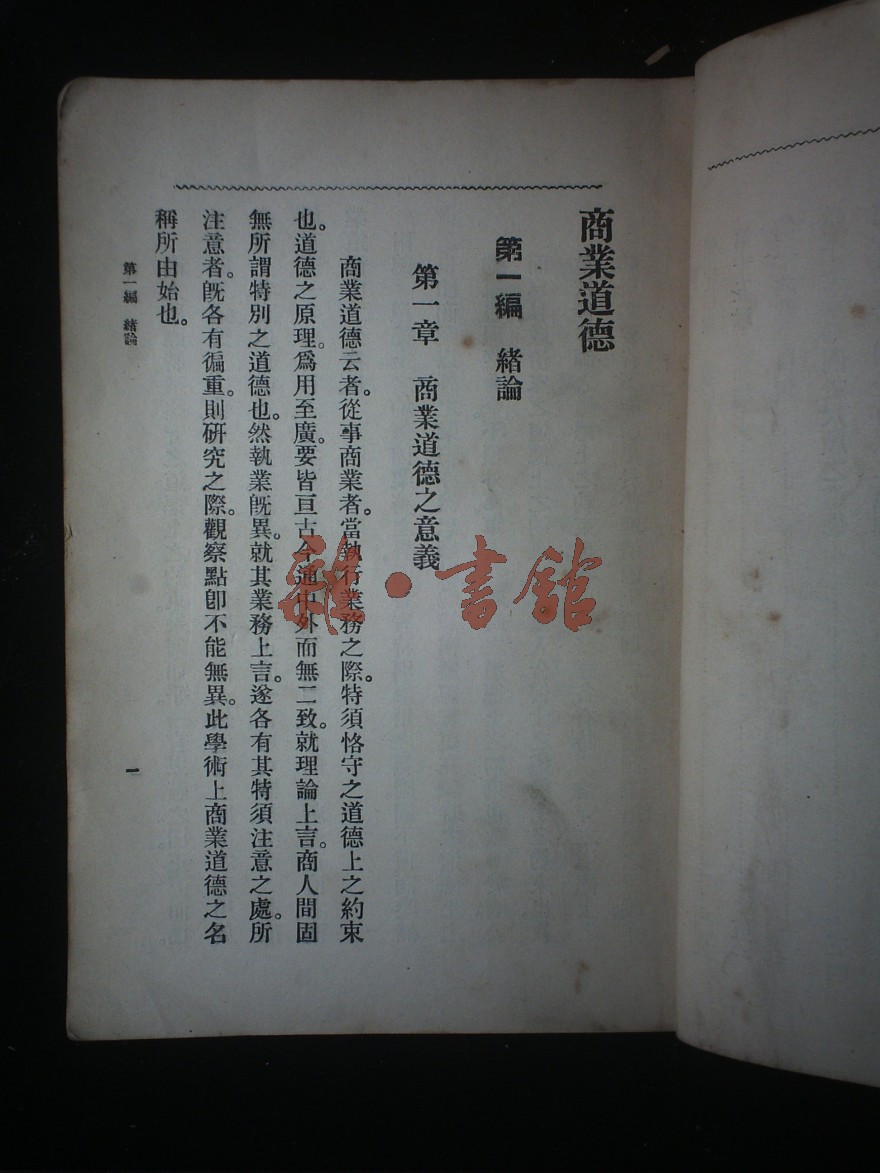 商業道德
第一編　緒論
第一章　商業道德之意義
商業道德云者。從事商業者。當執行業務之際。特須恪守之道德上之約束
也。道德之原理。爲用至廣。要皆亘古今通中外而無二致。就理論上言。商人間固
無所謂特別之道德也。然執業旣異。就其業務上言。遂各有其特須注意之處。所
注意者。旣各有徧重。則研究之際。觀察點卽不能無異。此學術上商業道德之名
稱所由始也。
第一編　緒論
一
雜·書館